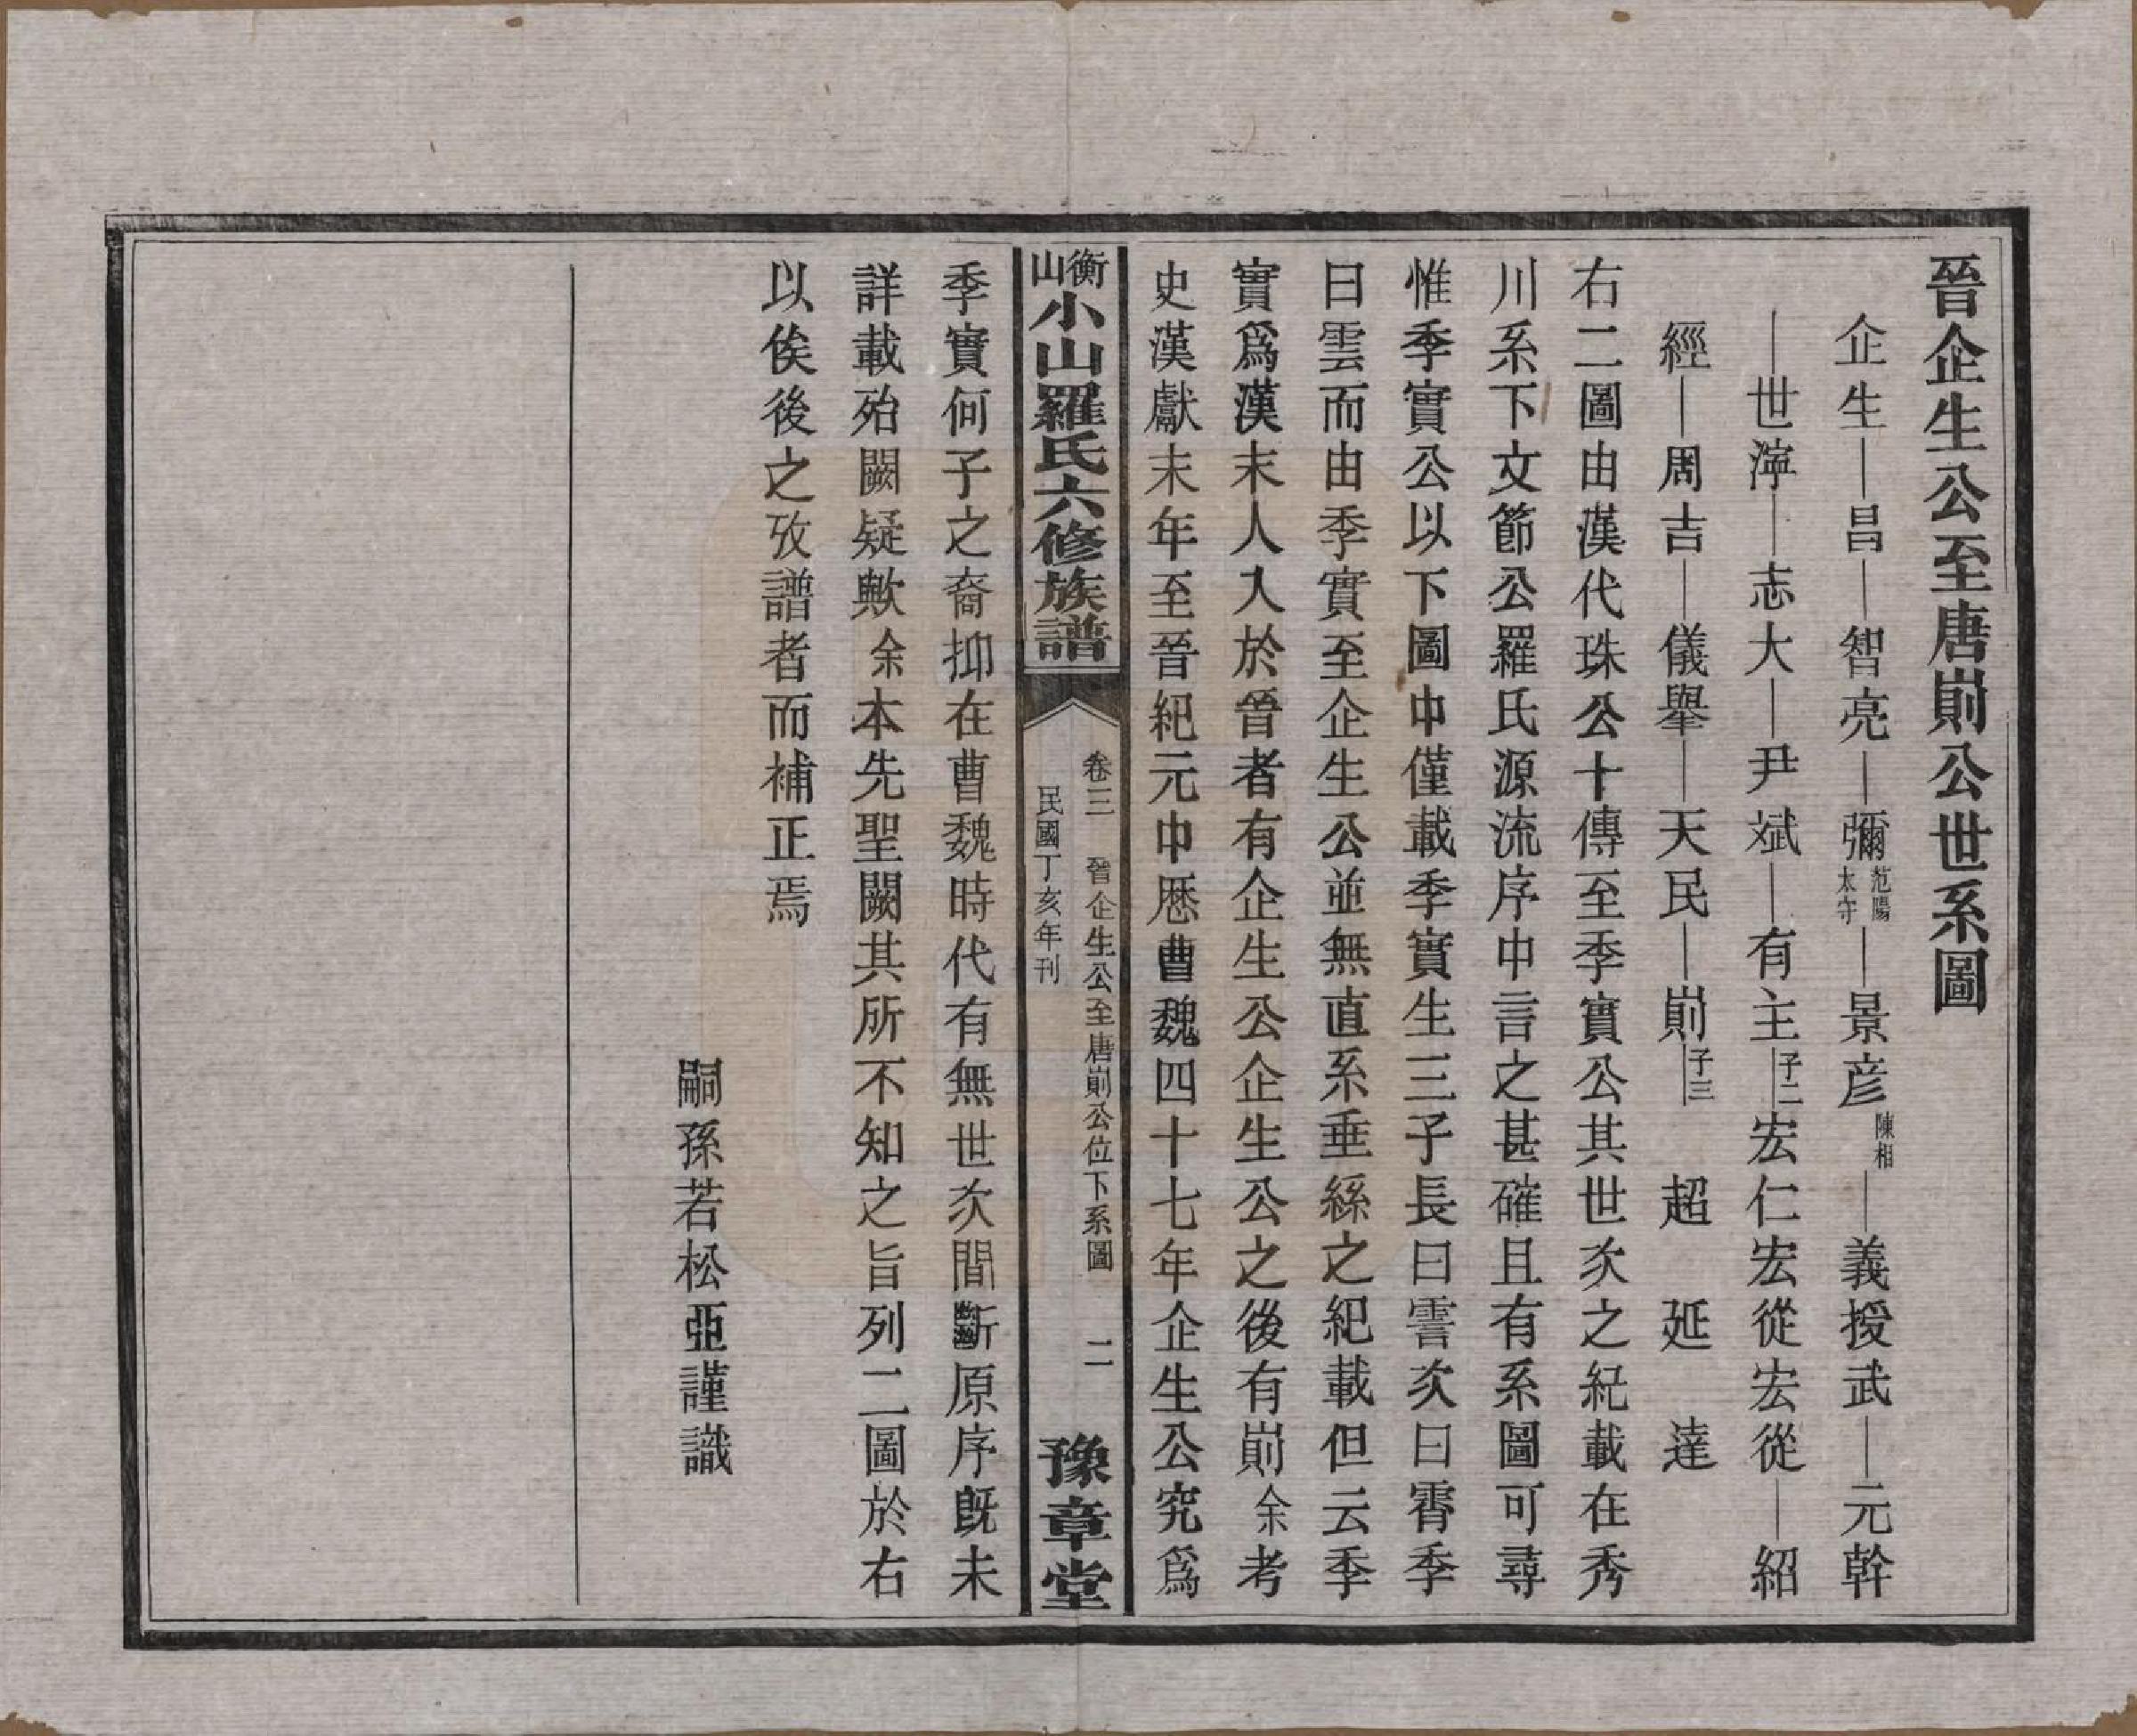 晉企生公至唐崱公世系圖
企生—昌—智亮—彌范陽太守—景彦陳相—義授武—元幹
—世濘—志大—尹斌—有主—子二宏仁宏從宏從—紹
經—周吉—儀舉—天民—崱子三 超 延 達
右二圖由漢代珠公十傳至季實公其世次之紀載在秀
川系下文節公羅氏源流序中言之甚確且有系圖可尋
惟季實公以下圖中僅載季實生三子長曰霅次曰霄季
曰雲而由季實至企生公並無直系垂絲之紀載但云季
實爲漢末人入於晉者有企生公企生公之後有崱余考
史漢獻末年至晉紀元中歷曹魏四十七年企生公究爲
衡山小山羅氏六修族譜
卷三 晉企生公至唐崱公位下系圖 二
民國丁亥年刊
豫章堂
季實何子之裔抑在曹魏時代有無世次間斷原序既未
詳載殆闕疑歟余本先聖闕其所不知之旨列二圖於右
以俟後之攷譜者而補正焉
嗣孫若松亞謹識